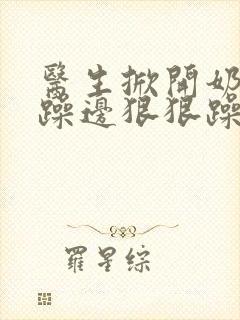 醫生掀開奶
躁邊狠狠躁
羅星綜